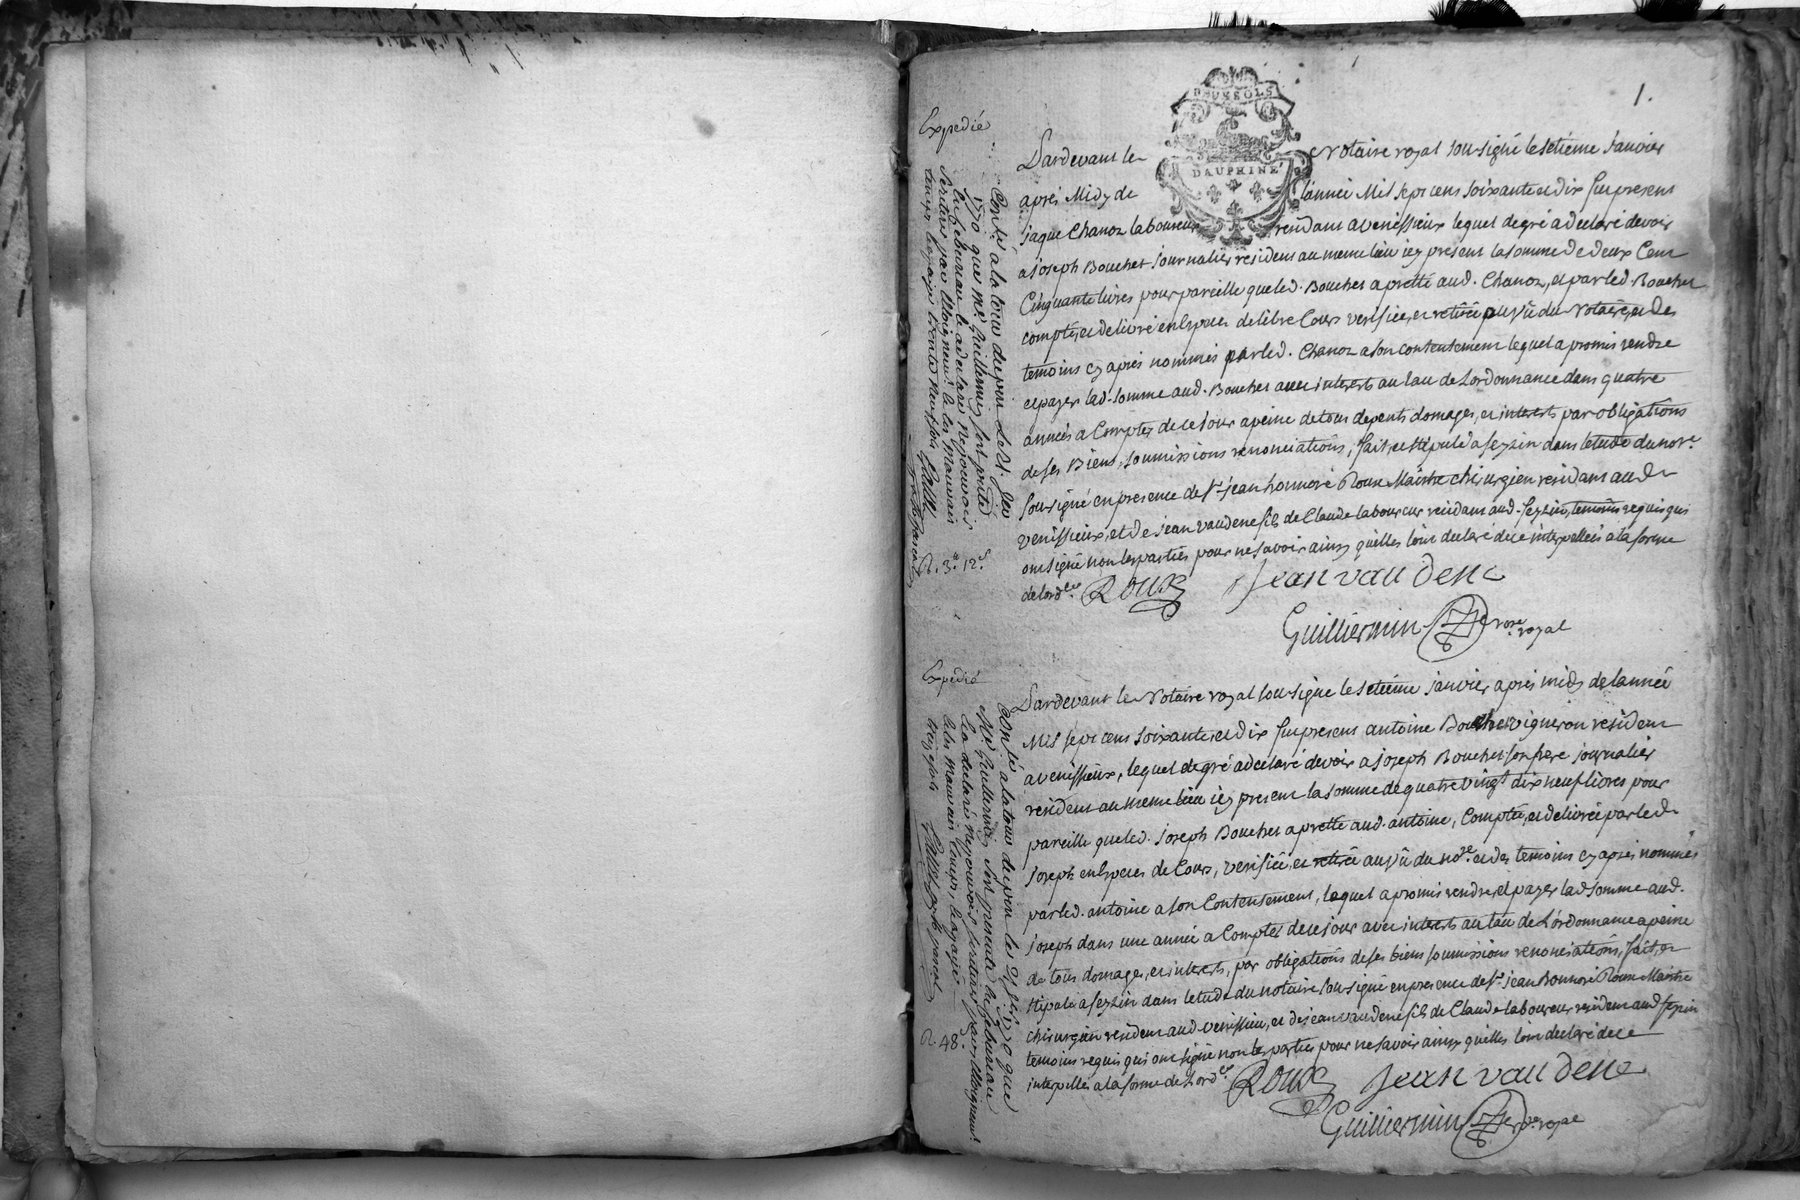 1.
DEUX SOLS
DAUPHINÉ
Expedié
Pardevant le Notaire royal sousigné le setiéme Janvier
aprés Midy de l'année Mil sept cens soixante et dix fut present
jaque Chanoz laboureur residant a venissieux lequel de gré a declaré devoir
a joseph Boucher journalier resident au meme lieu icy present la somme de deux Cent
Cinquante livres pour pareille que led. Boucher a pretté aud. Chanoz, et par led. Boucher
comptée, et delivré en Especes de libre Cours verifiée, et retirée au vû du Notaire, et des
temoins cy aprés nommés par led. Chanoz a son contentement lequel a promis rendre
et payer lad. somme aud. Boucher avec interets au tau de Lordonnance dans quatre
années a Compter de ce jour a peine de tous depents domages, et interets par obligations
de ses Biens, soumissions renonciations, fait, et stipulé a feyzin dans letude du not.re
sousigné en presence de S.r jean honnoré Roux Maitre chirurgien residant aud.
venissieux, et de jean vaudene fils de Claude laboureur residant aud. feyzin, temoins requis qui
ont signé non les parties pour ne savoir ainsy quelles l'ont declaré de ce interpellées a la forme
de lord.ce Roux Jean vaudene
Guilliermin No.re royal
Conlé a la tour du pin Le 21 fev
1770 que M.e Guillermin
tems, le payé trente neuf sols
R. 3.# 12.s
Expedié
Pardevant le Notaire royal sousigne le setiéme janvier aprés midy de lannée
Mil sept cens soixante, et dix fut present antoine Boucher vigneron resident
a venissieux, lequel de gré a declaré devoir a joseph Boucher son frere journalier
resident au meme lieu icy present la somme de quatre vingt dix neuf livres pour
pareille que led. joseph Boucher a pretté aud. antoine, Comptée, et delivrée par led.
joseph en Especes de Cours, verifiée, et retirée au vû du no.re et des temoins cy aprés nommés
par led. antoine a son Contentement, lequel a promis rendre, et payer lad. somme aud.
joseph dans une année a Compter de ce jour avec interets au tau de L'ordonnance a peine
de tous domages, et interets, par obligations de ses biens soumissions renonciations, fait, et
stipulé a feyzin dans letude du notaire sousigné en presence de S.r jean honnoré Roux Maitre
chirurgien resident aud. venissieu, et de jean vaudene fils de Claude laboureur resident aud. feyzin
temoins requis qui ont signé non les parties pour ne savoir ainsy quelles l'ont declaré de ce
interpellés a la forme de Lord.ce Roux Jean vaudene
Guilliermin No.re royal
Conlé a la tour du pin le 21 fev. 1770 que
R. 48.s